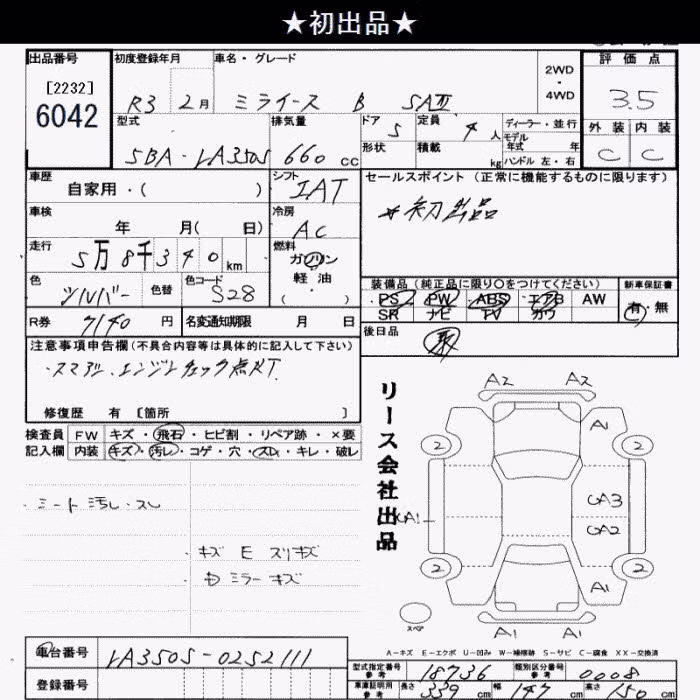 ★初出品★
出品番号
[2232]
6042
初度登録年月
R3 2月
車名・グレード
ミライース B SAⅢ
2WD
・
4WD
評価点
3.5
外装 内装
C C
型式
5BA-LA350S
排気量
660 cc
ドア 5
形状
定員 4 人
積載 kg
ディーラー・並行
モデル
年式 年
ハンドル 左・右
車歴
自家用・( )
シフト
IAT
セールスポイント (正常に機能するものに限ります)
*初出品
車検
年 月( 日)
冷房
AC
走行
5万8千340km
燃料
ガソリン
軽・油
( )
色
シルバー
色替
色コード
S28
装備品(純正品に限り〇をつけてください)
PS PW ABS エアB AW
SR ナビ TV カワ
新車保証書
有・無
R券 7140 円
名変通知期限 月 日
後日品
注意事項申告欄(不具合内容等は具体的に記入して下さい)
・スマアシ、エンジンチェック点灯.
修復歴 有 [箇所 ]
検査員 FW キズ・飛石・ヒビ割・リペア跡・×要
記入欄 内装 キズ・汚レ・コゲ・穴・スレ・キレ・破レ
・シート汚レ・スレ
・キズ E スリキズ
・ミラーキズ
リース会社出品
A2 A2
A1
2 2
UA3
UA1
UA2
2 2
A1
スペア
A1 A1
A-キズ E-エクボ U-凹み W-補修跡 S-サビ C-腐食 XX-交換済
車台番号 LA350S-0252111
登録番号
型式指定番号
参考
18736
類別区分番号
参考
0008
車庫証明用
参考
長さ 339 cm 幅 147 cm 高さ 150 cm